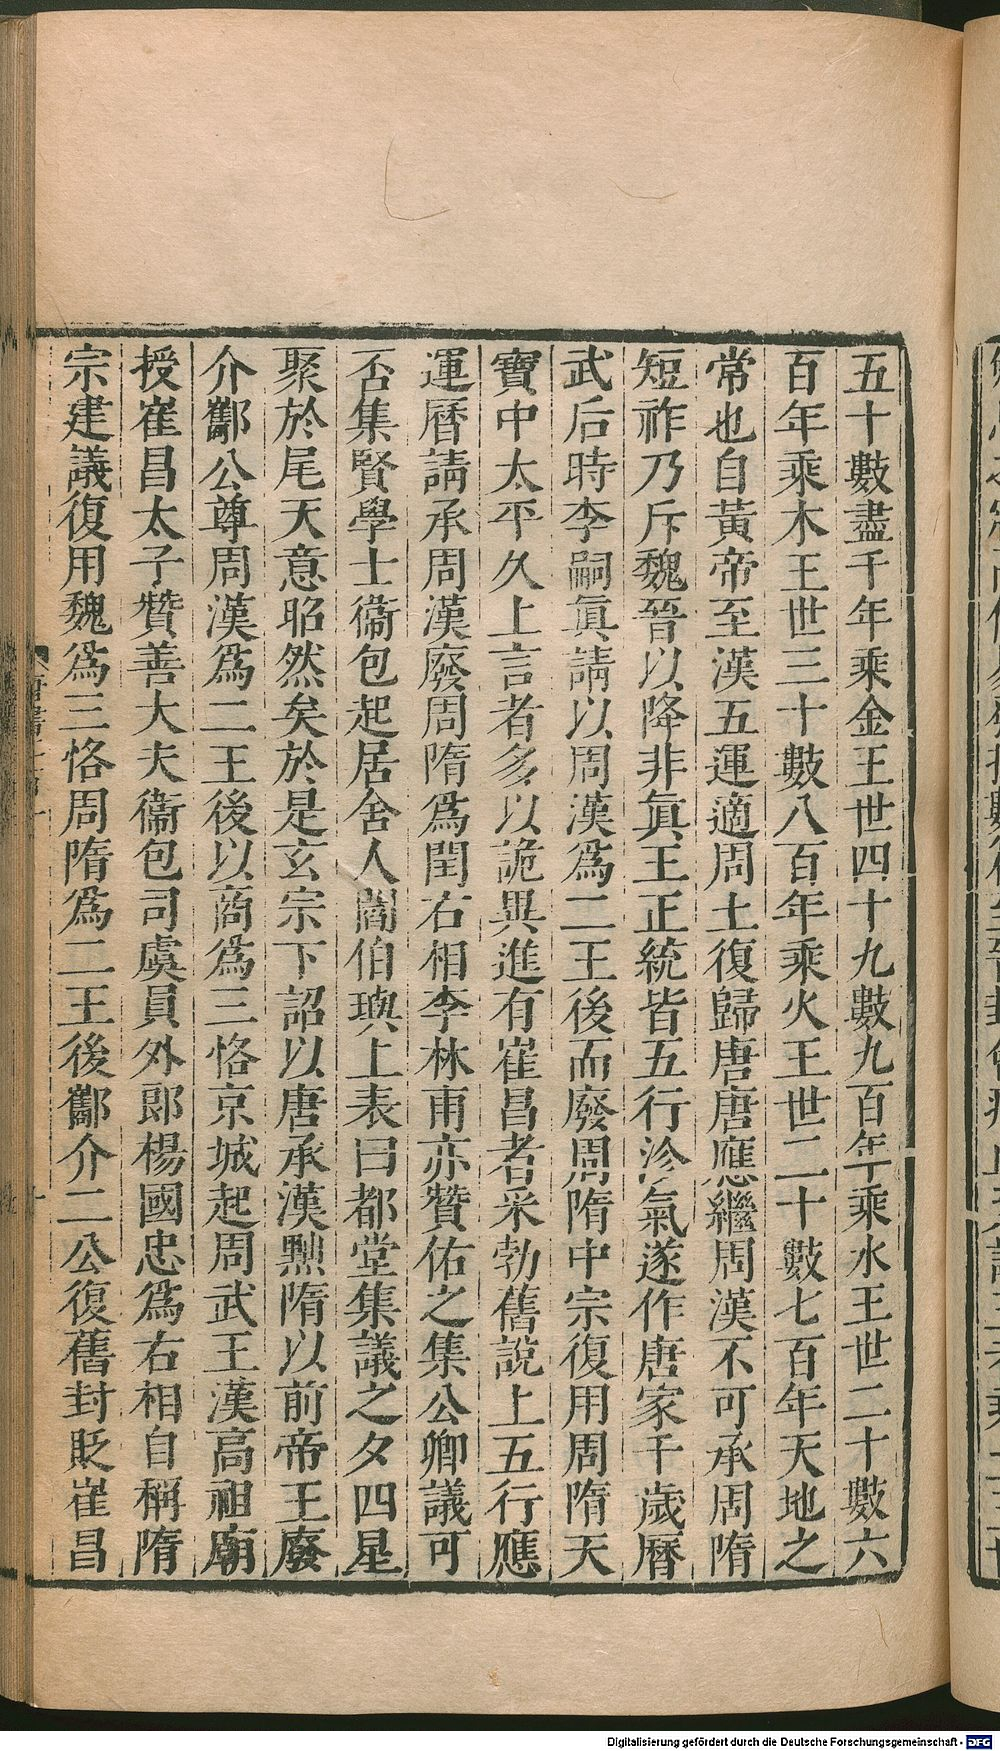 五十數盡千年乘金王世四十九數九百年乘水王世二十數六
百年乘木王世三十數八百年乘火王世二十數七百年天地之
常也自黃帝至漢五運適周土復歸唐唐應繼周漢不可承周隋
短祚乃斥魏晉以降非眞王正統皆五行沴氣遂作唐家千歲曆
武后時李嗣眞請以周漢爲二王後而廢周隋中宗復用周隋天
寶中太平久上言者多以詭異進有崔昌者采勃舊說上五行應
運曆請承周漢廢周隋爲閏右相李林甫亦贊佑之集公卿議可
否集賢學士衞包起居舍人閻伯璵上表曰都堂集議之夕四星
聚於尾天意昭然矣於是玄宗下詔以唐承漢黜隋以前帝王廢
介酅公尊周漢爲二王後以商爲三恪京城起周武王漢高祖廟
授崔昌太子贊善大夫衞包司虞員外郎楊國忠爲右相自稱隋
宗建議復用魏爲三恪周隋爲二王後酅介二公復舊封貶崔昌
Digitalisierung gefördert durch die Deutsche Forschungsgemeinschaft - DFG